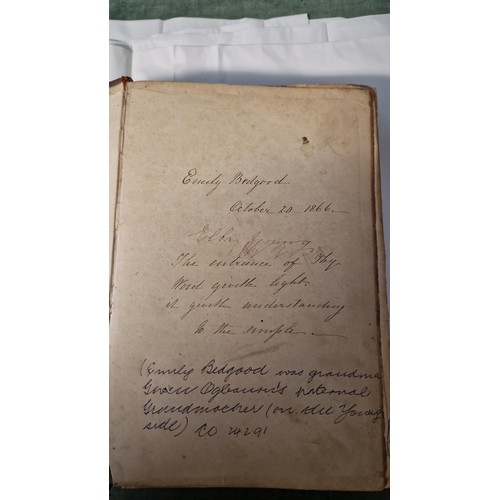 Emily Bedgood
October 20. 1866.
The entrance of Thy
Word giveth light.
it giveth understanding
to the simple.
(Emily Bedgood was grandma
Gwen Ogbourn's paternal
Grandmother (on the Young
side)